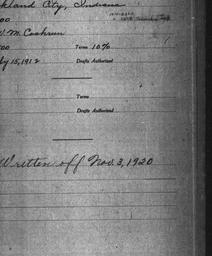 kland City, Indiana
00
V. M. Cochrun
00 Term 10%
ly 15, 1912 Drafts Authorized
Term
Drafts Authorized
Written off Nov. 3, 1920